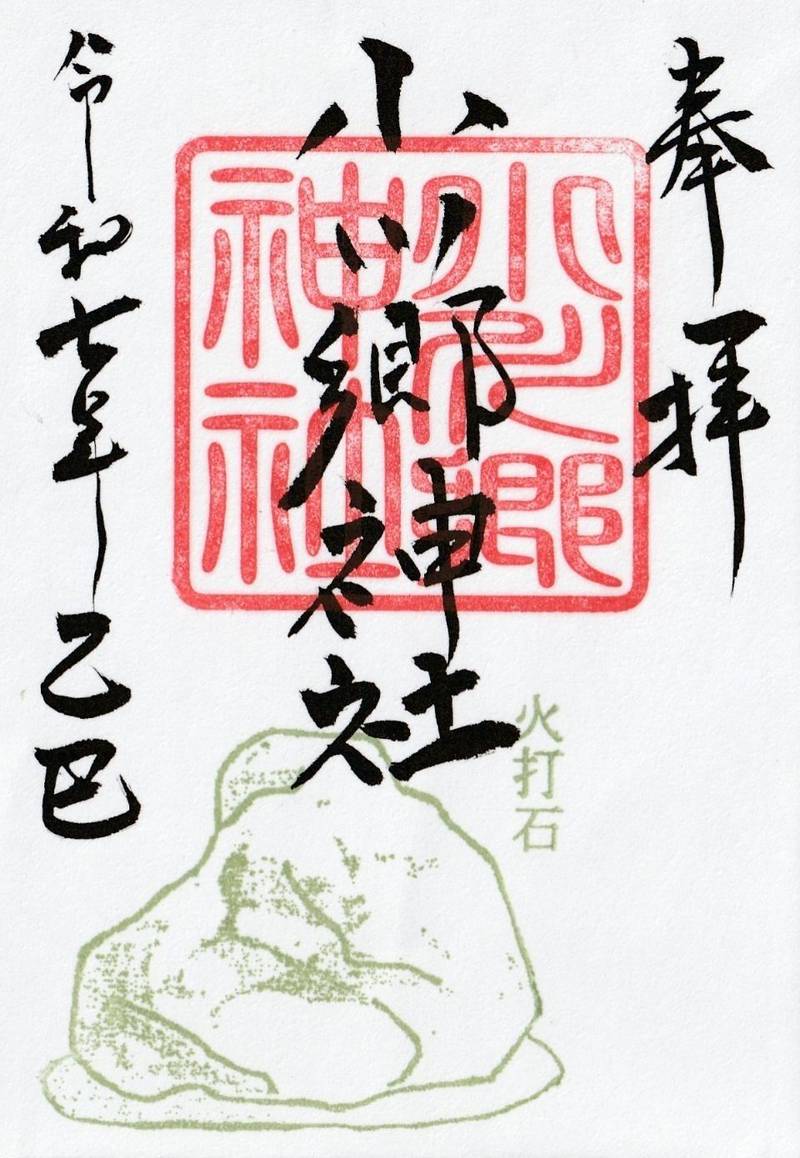 奉拝
小郷神社
令和七年乙巳
神社
火打石